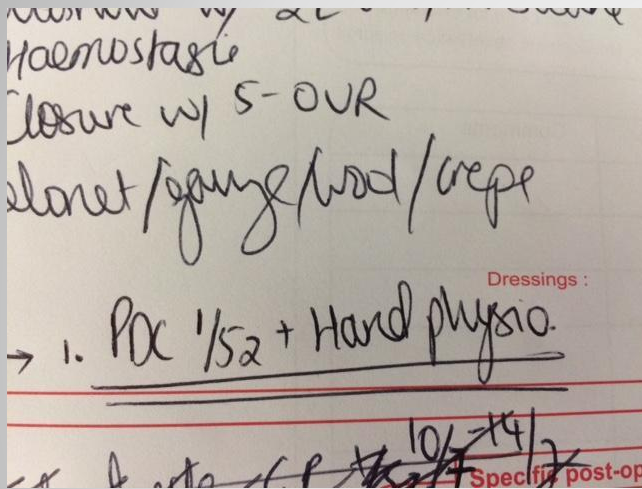 Haemostasis
Closure w/ 5-0 VR
elonet/gauze/wool/crepe
Dressings :
→ 1. PDC 1/52 + Hand physio.
10/7-14/7
Specific post-op